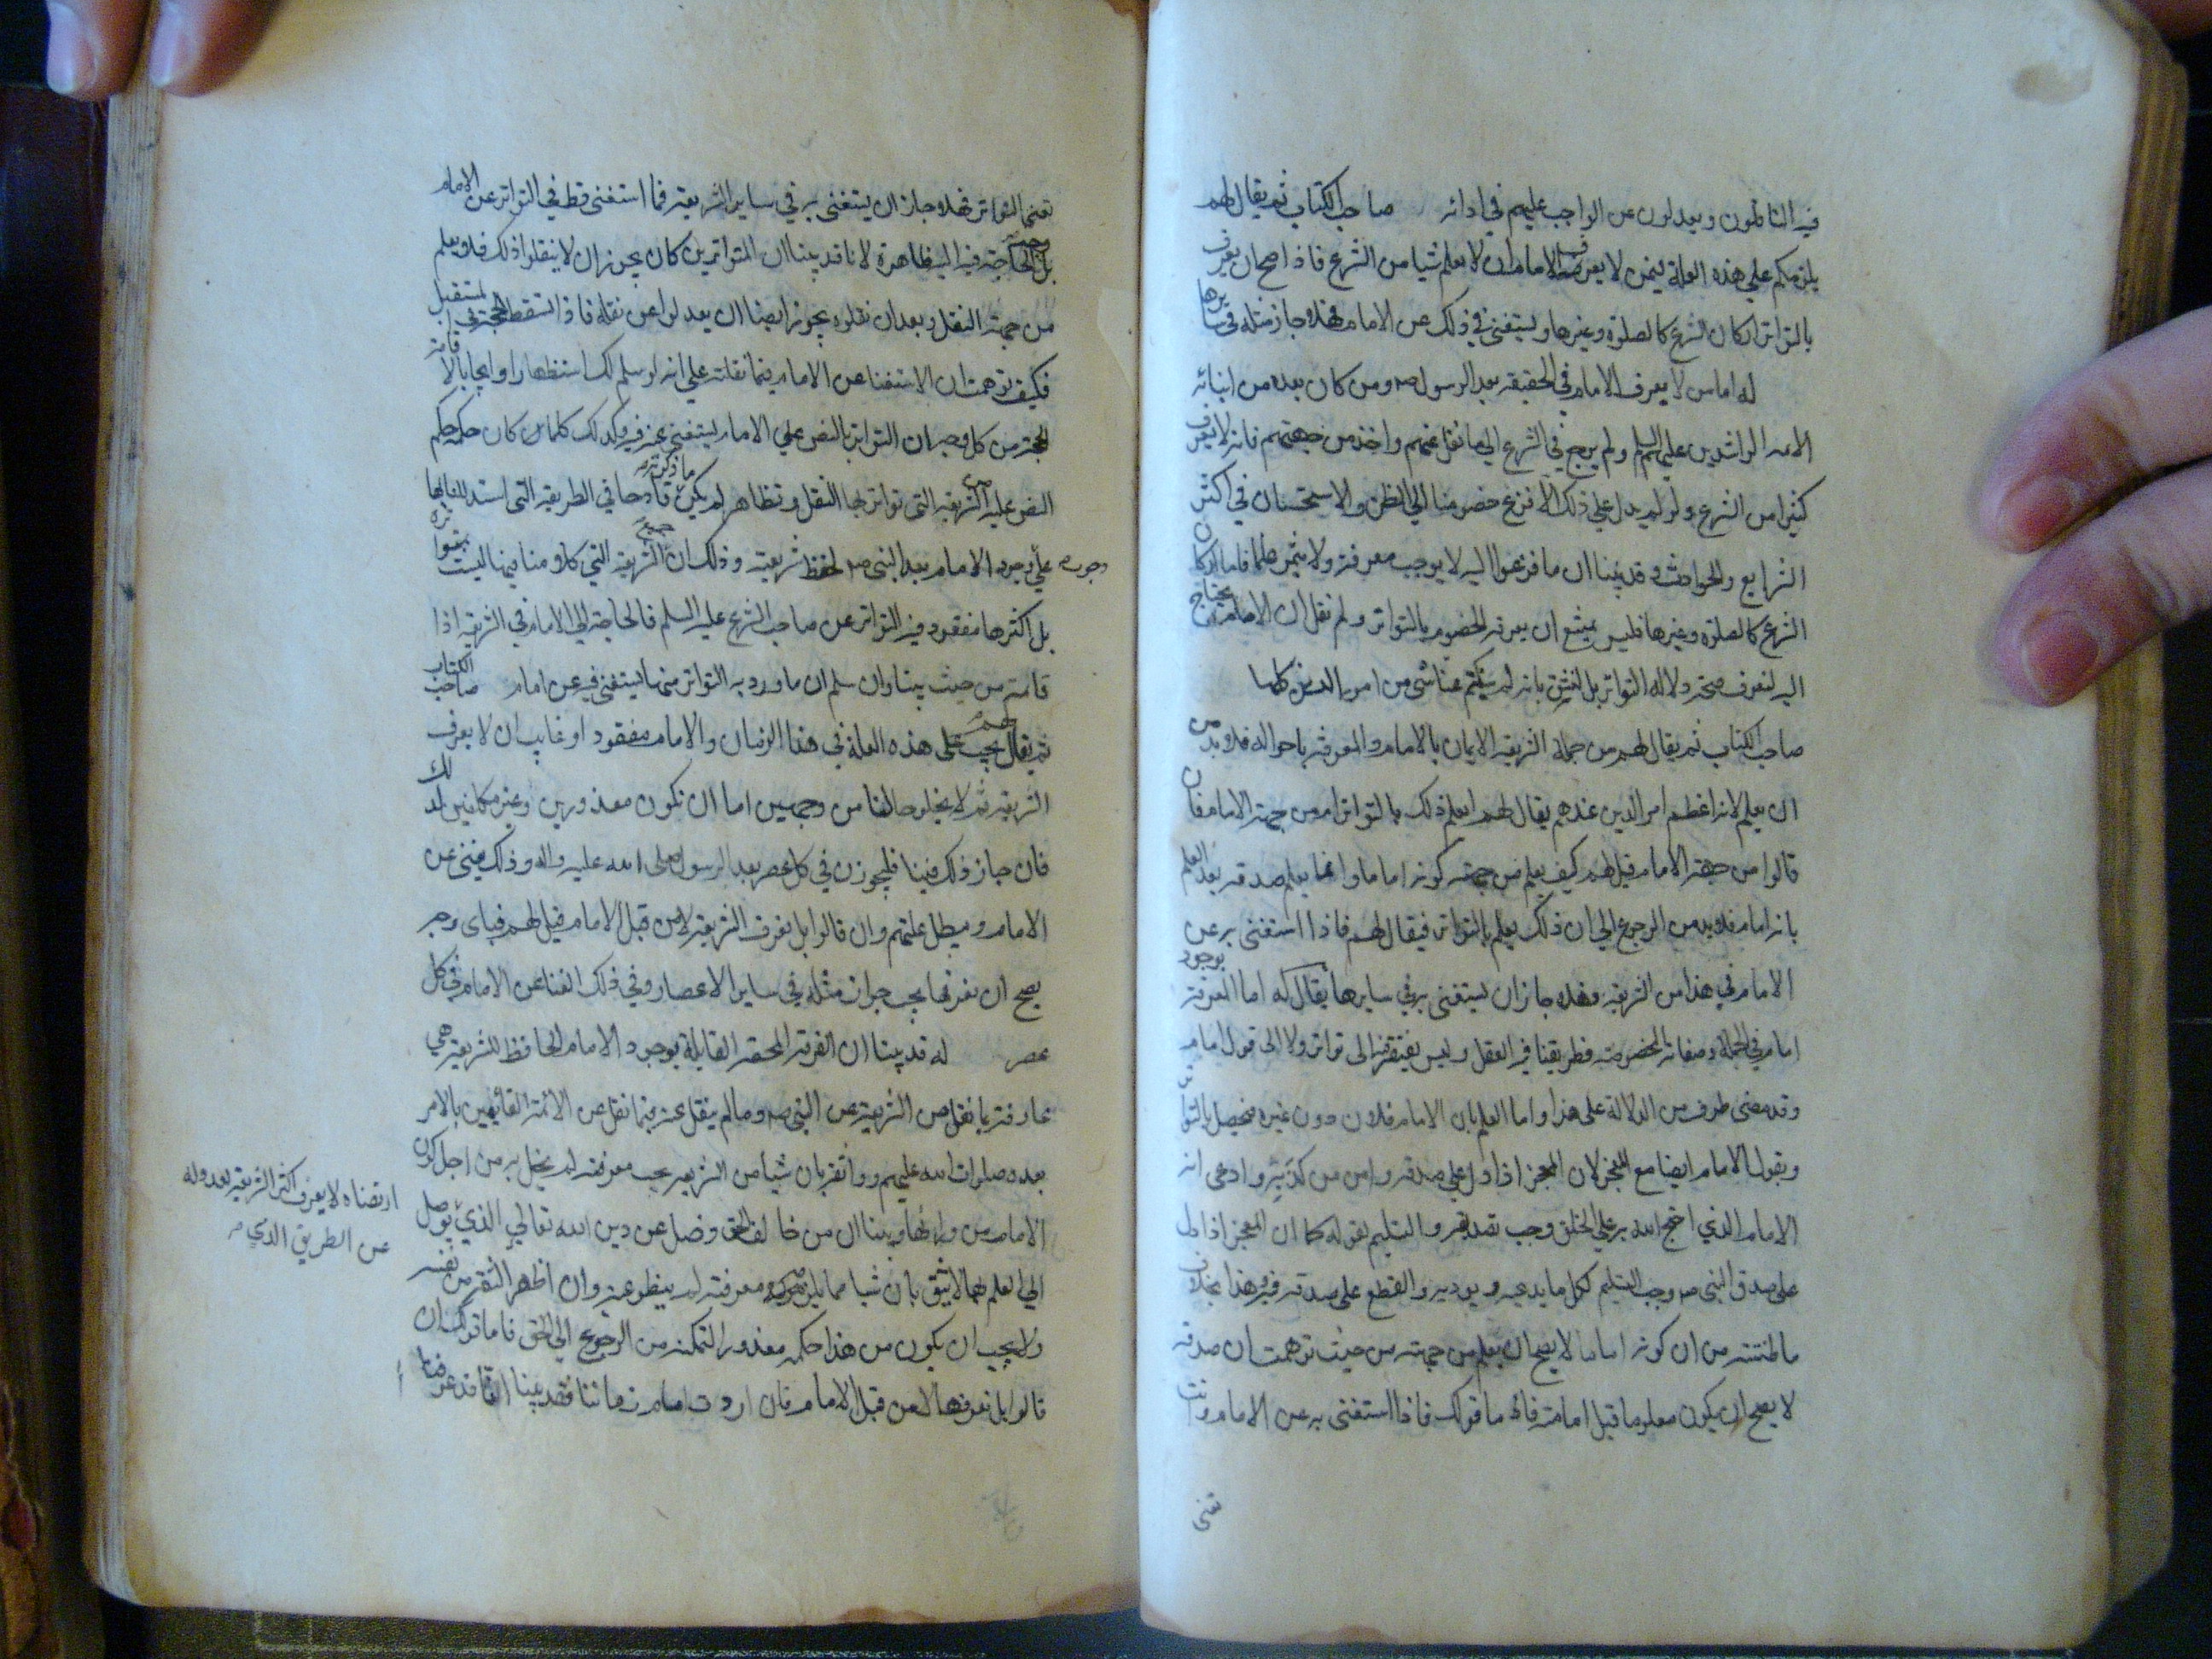 فيه الناقلون ويعدلون عن الواجب عليهم في ادائه صاحب الكتاب ثم يقال لهم
يلزمكم علي هذه العلة فيمن لا يعرف الامام ان لا يعلم شيا من الشرع فاذا صح ان يعرف
بالتواتر اركان الشرع كالصلوة وغيرها ويستغنى في ذلك عن الامام فهلا جاز مثله في سايرها
له اما من لا يعرف الامام في الحقيقه بعد الرسول صه ومن كان بعده من ابنائه
الائمه الراشدين عليهم السلم ولم يرجع في الشرع الي ما نقل عنهم واخذ من جهتهم فانه لا يعرف
كثيرا من الشرع ولو لم يدل علي ذلك الا فزع خصومنا الي الظن والاستحسان في اكثر
الشرايع والحوادث وقد بينا ان ما فزعوا اليه لا يوجب معرفة ولا يثمر علما فاما اركان
الشرع كالصلوة وغيرها فليس يمتنع ان يعرفه الخصوم بالتواتر ولم نقل ان الامام يحتاج
اليه لتعرف صحة دلاله التواتر بل لنثق بانه لم ينكتم عنا شي من امور الدين كلها
صاحب الكتاب ثم يقال لهم من جملة الشريعة الايمان بالامام والمعرفة باحواله فلا بد من
ان يعلم لانه اعظم امر الدين عندهم يقال لهم ايعلم ذلك بالتواتر ام من جهة الامام فان
قالوا من جهة الامام قيل لهم كيف يعلم من جهته كونه اماما وانما يعلم صدقه بعد العلم
بانه امام فلا بد من الرجوع الي ان ذلك يعلم بالتواتر فيقال لهم فاذا استغنى به عن
الامام في هذا من الشريعه فهلا جاز ان يستغنى به في سايرها يقال له اما المعرفة بوجود
امام في الجملة وصفاته المخصوصه فطريقنا فيه العقل وليس يفتقر فيه الى تواتر ولا الى قول امام
وقد مضى طرف من الدلالة على هذا واما العلم بان الامام فلان دون غيره فيحصل بالتواتر
وبقول الامام ايضا مع المعجز لان المعجز اذا دل علي صدقه وامن من كذبه وادعى انه
الامام الذي احتج الله به علي الخلق وجب تصديقه والتسليم لقوله كما ان المعجز اذا دل
على صدق النبي صه وجب التسليم لكل ما يدعيه ويوديه والقطع على صدقه فيه وهذا بخلاف
ما ظننته من ان كونه اماما لا يصح ان يعلم من جهته من حيث توهمت ان صدقه
لا يصح ان يكون معلوما قبل امامته فاما قولك فاذا استغنى به عن الامام وانت
تعنى
تعنى التواتر فهلا جاز ان يستغنى به في ساير الشريعة فما استغنى قط في التواتر عن الامام
بل الحاجة فيه اليه ظاهرة لانا قد بينا ان المتواترين كان يجوز ان لا ينقلوا ذلك فلا يعلم
من جهة النقل وبعد ان نقلوه يجوز ايضا ان يعدلوا عن نقله فاذا تسقط الحجة في المستقبل
فكيف توهمت ان الاستغنا عن الامام فيما نقلته علي انه لو سلم لك استظهارا وايجابا لاقامة
الحجة من كل وجه ان التواتر بالنص علي الامام يستغنى عنه فيه وكذلك كلما كان حكمه حكم
النص عليه من الشريعه التي تواتر بها النقل وتظاهر لم يكن ما ذكرته قادحا في الطريقه التي استدللنا بها
علي وجوب وجود الامام بعد النبي صه لحفظ شريعته وذلك ان جميع الشريعه التي كلامنا فيها ليست بمتواترة
بل اكثرها مفقود فيه التواتر عن صاحب الشرع عليه السلم فالحاجة الي الامام في الشريعه اذا
قائمة من حيث بينا وان سلم ان ما ورد به التواتر منها يستغنى فيه عن امام صاحب الكتاب
ثم يقال لهم يجب على هذه العلة في هذا الزمان والامام مفقود او غايب ان لا يعرف
الشريعة ثم لا يخلو حالنا من وجهين اما ان نكون معذورين وغير مكلفين لذلك
فان جاز ذلك فينا فليجوزن في كل عصر بعد الرسول صلى الله عليه واله وذلك يغني عن
الامام ويبطل علتهم وان قالوا بل نعرف الشريعة لا من قبل الامام قيل لهم فباي وجه
يصح ان نعرفها يجب جواز مثله في ساير الاعصار وفي ذلك الغنا عن الامام في كل
عصر له قد بينا ان الفرقة المحقة القايلة بوجود الامام الحافظ للشريعة هي
عارفة بما نقل من الشريعة عن النبي صه وما لم ينقل عنه فيما نقل عن الائمة القائمين بالامر
بعده صلوات الله عليهم وواثقة بان شيا من الشريعه يجب معرفته لم يخل به من اجل كون
الامام من ورائها وبينا ان من خالف الحق وضل عن دين الله تعالي الذي يوصل
الي العلم بها لا يثق بان شيا مما يلزمه معرفته لم ينطو عنه وان اظهر الثقة من نفسه
ولا يجب ان يكون من هذا حكمه معذورا لتمكنه من الرجوع الي الحق فاما قولك ان
قالوا بل نعرفها لا من قبل الامام فان اردت امام زماننا فقد بينا انا قد عرفنا
وجوب
ارتضاه لا يعرف اكثر الشريعه لعدوله
عن الطريق الذي